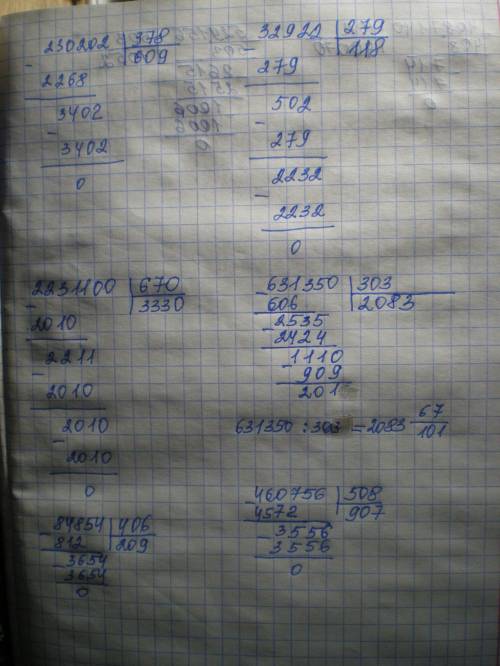 - 230202 | 378
2268 | 609
- 3402
3402
0
- 32922 | 279
279 | 118
- 502
279
- 2232
2232
0
- 2231100 | 670
2010 | 3330
- 2211
2010
- 2010
2010
0
- 631350 | 303
606 | 2083
- 2535
2424
- 1110
909
201
631350 : 303 = 2083 67/101
- 84854 | 406
812 | 209
- 3654
3654
0
- 460756 | 508
4572 | 907
- 3556
3556
0